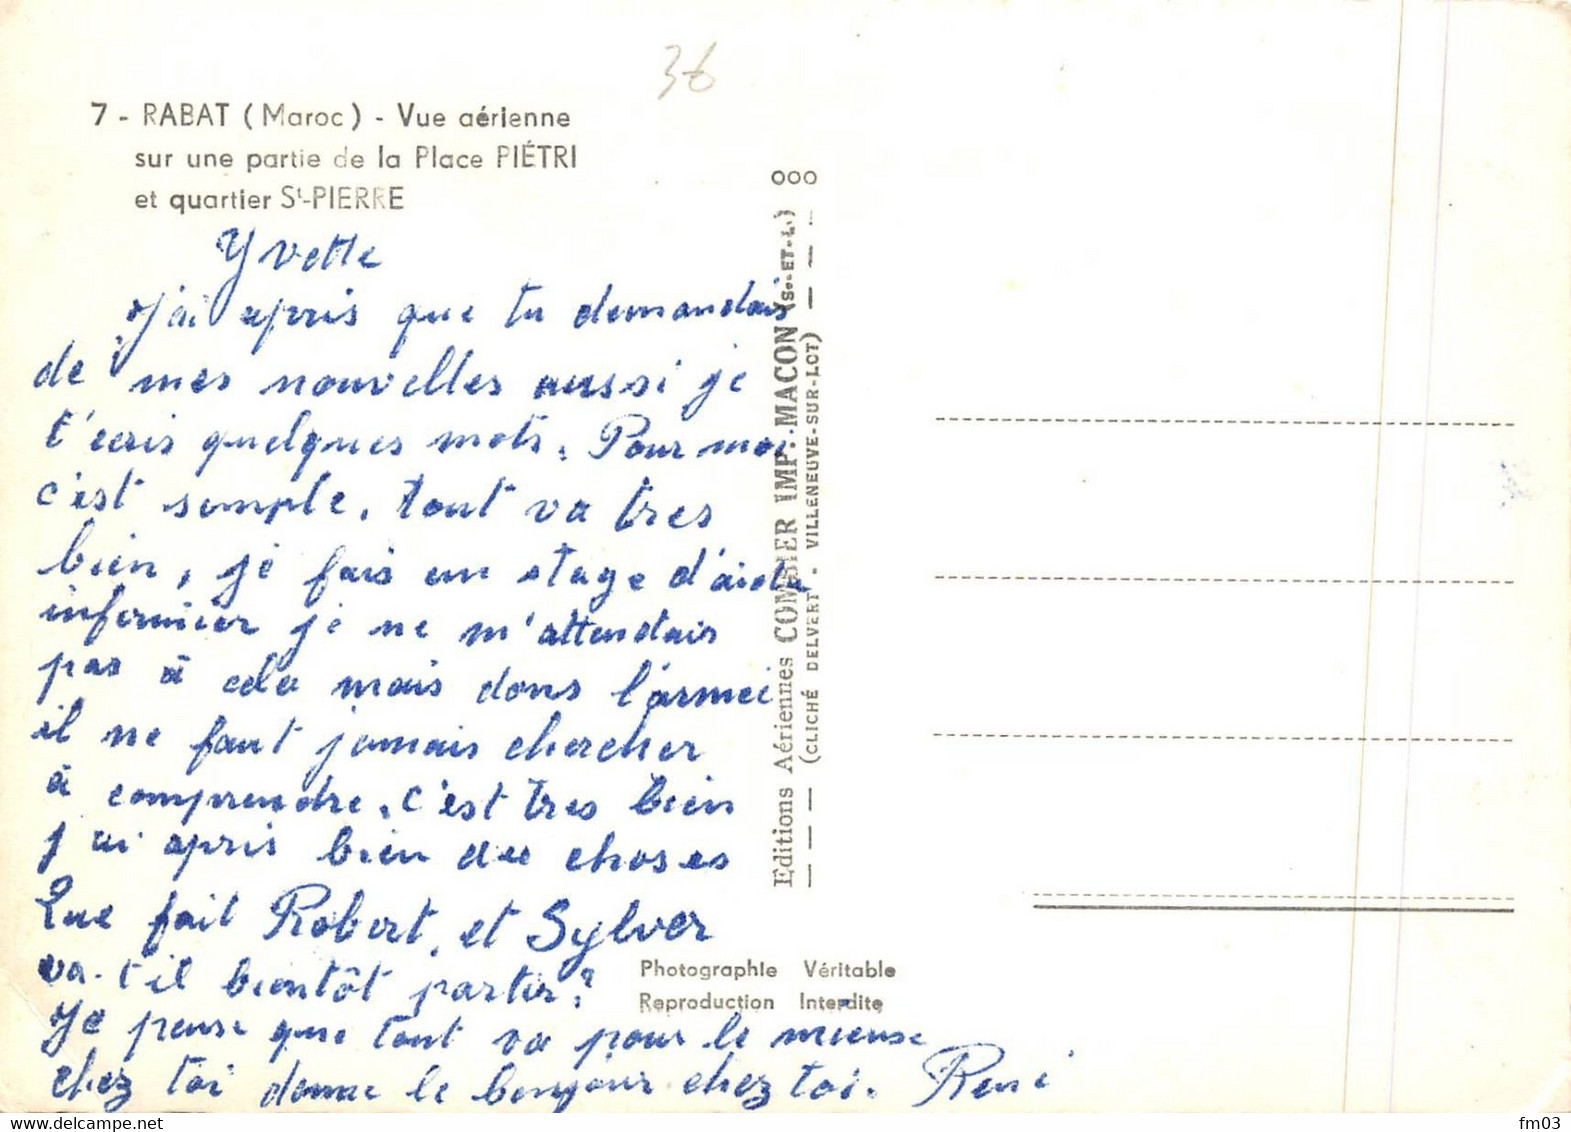 36
7 - RABAT (Maroc) - Vue aérienne
sur une partie de la Place PIÉTRI
et quartier St-PIERRE
Yvette
j'ai apris que tu demandais
de mes nouvelles aussi je
t'écris quelques mots. Pour moi
c'est semple, tout va tres
bien, je fais un stage d'aide
infermier je ne m'attendais
pas à cela mais dans l'armei
il ne faut jamais chercher
à comprendre. c'est tres bien
j'ai apris bien des choses
Que fait Robert, et Sylver
va-t'il bientôt partir?
Je pense que tout va pour le mieuse
chez toi donne le bonjour chez toi. René
ooo
Editions Aériennes COMBIER IMP. MACON (S.-ET-L.)
(CLICHÉ DELVERT - VILLENEUVE-SUR-LOT)
Photographie Véritable
Reproduction Interdite
fm03